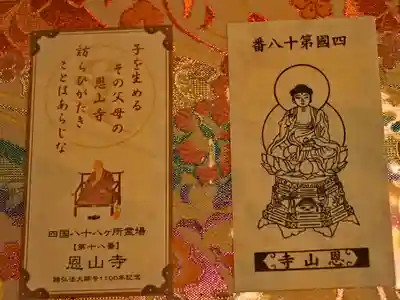 子を生める
その父母の
恩山寺
訪らひがたき
ことはあらじな
四国八十八ヶ所霊場
【第十八番】
恩山寺
諡弘法大師号1100年記念
四國第十八番
恩山寺